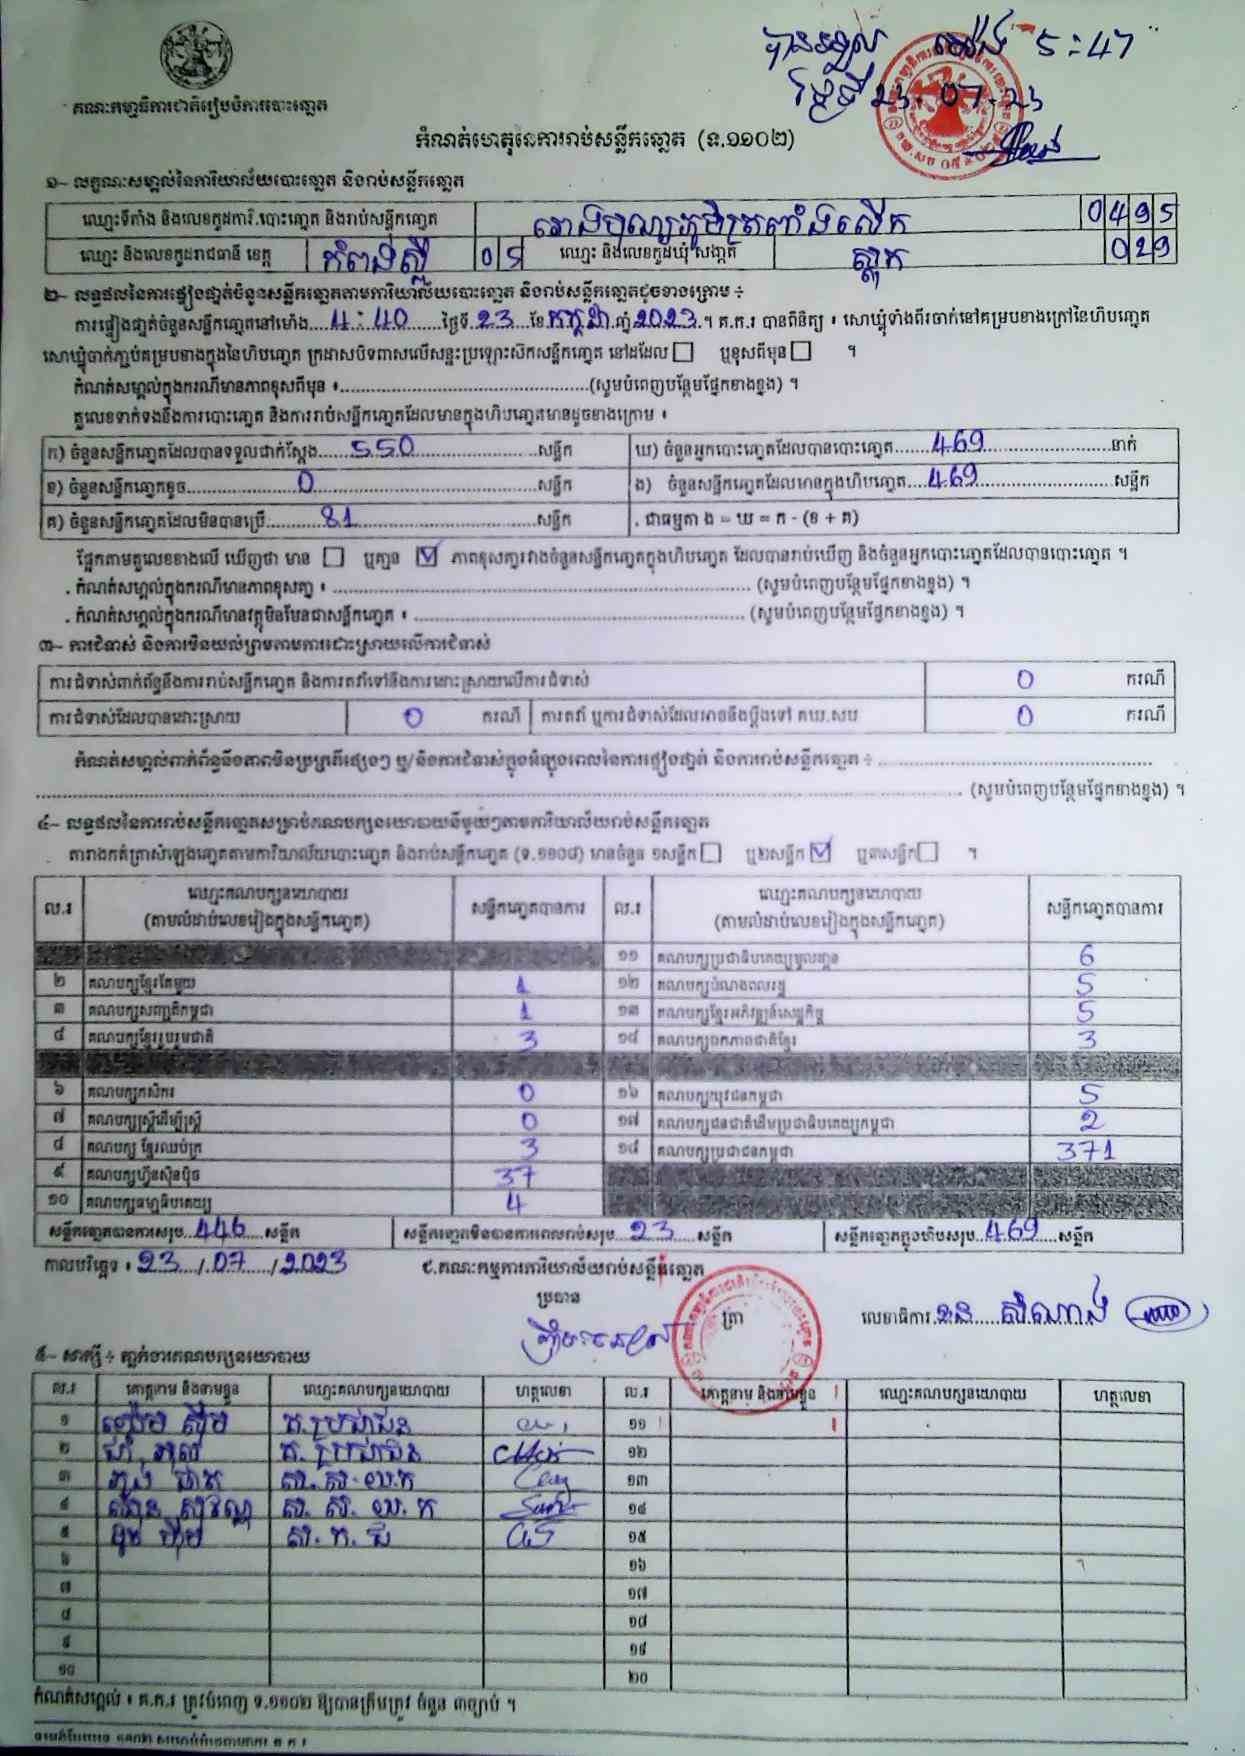 បានទទួល ម៉ោង 5:47
ថ្ងៃទី 23.07.23
គណៈកម្មាធិការជាតិរៀបចំការបោះឆ្នោត
កំណត់ហេតុនៃការរាប់សន្លឹកឆ្នោត (ទ.១១០២)
១- លក្ខណៈសម្គាល់នៃការិយាល័យបោះឆ្នោត និងរាប់សន្លឹកឆ្នោត
ឈ្មោះទីតាំង និងលេខកូដការិ.បោះឆ្នោត និងរាប់សន្លឹកឆ្នោត រោងបុណ្យភូមិត្រពាំងលើក 0495
ឈ្មោះ និងលេខកូដរាជធានី ខេត្ត កំពង់ស្ពឺ 05 ឈ្មោះ និងលេខកូដឃុំ សង្កាត់ ស្តុក 029
២- លទ្ធផលនៃការផ្ទៀងផ្ទាត់ចំនួនសន្លឹកឆ្នោតតាមការិយាល័យបោះឆ្នោត និងរាប់សន្លឹកឆ្នោតដូចខាងក្រោម ៖
ការផ្ទៀងផ្ទាត់ចំនួនសន្លឹកឆ្នោតនៅម៉ោង 4:40 ថ្ងៃទី 23 ខែ កក្កដា ឆ្នាំ 2023 ។ គ.ក.រ បានពិនិត្យ ៖ សោឃ្មុំទាំងពីរចាក់នៅគម្របខាងក្រៅនៃហិបឆ្នោត
សោឃ្មុំចាក់ភ្ជាប់គម្របខាងក្នុងនៃហិបឆ្នោត ក្រដាសបិទពាសលើសន្ទះប្រឡោះស៊កសន្លឹកឆ្នោត នៅដដែល ☐ ឬខុសពីមុន ☐ ។
កំណត់សម្គាល់ក្នុងករណីមានភាពខុសពីមុន ៖ (សូមបំពេញបន្ថែមផ្នែកខាងខ្នង) ។
តួលេខទាក់ទងនឹងការបោះឆ្នោត និងការរាប់សន្លឹកឆ្នោតដែលមានក្នុងហិបឆ្នោតមានដូចខាងក្រោម ៖
ក) ចំនួនសន្លឹកឆ្នោតដែលបានទទួលជាក់ស្តែង 550 សន្លឹក ឃ) ចំនួនអ្នកបោះឆ្នោតដែលបានបោះឆ្នោត 469 នាក់
ខ) ចំនួនសន្លឹកឆ្នោតខូច 0 សន្លឹក ង) ចំនួនសន្លឹកឆ្នោតដែលមានក្នុងហិបឆ្នោត 469 សន្លឹក
គ) ចំនួនសន្លឹកឆ្នោតដែលមិនបានប្រើ 81 សន្លឹក . ជាធម្មតា ង = ឃ = ក - (ខ + គ)
ផ្អែកតាមតួលេខខាងលើ ឃើញថា មាន ☐ ឬគ្មាន ☑ ភាពខុសគ្នារវាងចំនួនសន្លឹកឆ្នោតក្នុងហិបឆ្នោត ដែលបានរាប់ឃើញ និងចំនួនអ្នកបោះឆ្នោតដែលបានបោះឆ្នោត ។
. កំណត់សម្គាល់ក្នុងករណីមានភាពខុសគ្នា ៖ (សូមបំពេញបន្ថែមផ្នែកខាងខ្នង) ។
. កំណត់សម្គាល់ក្នុងករណីមានវត្ថុមិនមែនជាសន្លឹកឆ្នោត ៖ (សូមបំពេញបន្ថែមផ្នែកខាងខ្នង) ។
៣- ការជំទាស់ និងការមិនយល់ព្រមតាមការដោះស្រាយលើការជំទាស់
ការជំទាស់ពាក់ព័ន្ធនឹងការរាប់សន្លឹកឆ្នោត និងការតវ៉ាទៅនឹងការដោះស្រាយលើការជំទាស់ 0 ករណី
ការជំទាស់ដែលបានដោះស្រាយ 0 ករណី ការតវ៉ា ឬការជំទាស់ដែលអាចនឹងប្តឹងទៅ គឃ.សប 0 ករណី
កំណត់សម្គាល់ពាក់ព័ន្ធនឹងភាពមិនប្រក្រតីផ្សេងៗ ឬ/និងការជំទាស់ក្នុងអំឡុងពេលនៃការផ្ទៀងផ្ទាត់ និងការរាប់សន្លឹកឆ្នោត ៖
(សូមបំពេញបន្ថែមផ្នែកខាងខ្នង) ។
៤- លទ្ធផលនៃការរាប់សន្លឹកឆ្នោតសម្រាប់គណបក្សនយោបាយនីមួយៗតាមការិយាល័យរាប់សន្លឹកឆ្នោត
តារាងកត់ត្រាសំឡេងឆ្នោតតាមការិយាល័យបោះឆ្នោត និងរាប់សន្លឹកឆ្នោត (ទ.១១០៨) មានចំនួន ១សន្លឹក ☐ ឬ២សន្លឹក ☑ ឬ៣សន្លឹក ☐ ។
ល.រ ឈ្មោះគណបក្សនយោបាយ (តាមលំដាប់លេខរៀងក្នុងសន្លឹកឆ្នោត) សន្លឹកឆ្នោតបានការ ល.រ ឈ្មោះគណបក្សនយោបាយ (តាមលំដាប់លេខរៀងក្នុងសន្លឹកឆ្នោត) សន្លឹកឆ្នោតបានការ
១១ គណបក្សប្រជាធិបតេយ្យមូលដ្ឋាន 6
២ គណបក្សខ្មែរតែមួយ 1 ១២ គណបក្សបំណងពលរដ្ឋ 5
៣ គណបក្សសញ្ជាតិកម្ពុជា 1 ១៣ គណបក្សខ្មែរអភិវឌ្ឍន៍សេដ្ឋកិច្ច 5
៤ គណបក្សខ្មែររួបរួមជាតិ 3 ១៤ គណបក្សឯកភាពជាតិខ្មែរ 3
៦ គណបក្សកសិករ 0 ១៦ គណបក្សយុវជនកម្ពុជា 5
៧ គណបក្សស្ត្រីដើម្បីស្ត្រី 0 ១៧ គណបក្សជនជាតិដើមប្រជាធិបតេយ្យកម្ពុជា 2
៨ គណបក្ស ខ្មែរឈប់ក្រ 3 ១៨ គណបក្សប្រជាជនកម្ពុជា 371
៩ គណបក្សហ៊្វុនស៊ិនប៉ិច 37
១០ គណបក្សធម្មាធិបតេយ្យ 4
សន្លឹកឆ្នោតបានការសរុប 446 សន្លឹក សន្លឹកឆ្នោតមិនបានការពេលរាប់សរុប 23 សន្លឹក សន្លឹកឆ្នោតក្នុងហិបសរុប 469 សន្លឹក
កាលបរិច្ឆេទ ៖ 23/07/2023 ជ.គណៈកម្មការការិយាល័យរាប់សន្លឹកឆ្នោត
ប្រធាន ត្រា លេខាធិការ សំណាង
៥- សាក្សី ៖ ភ្នាក់ងារគណបក្សនយោបាយ
ល.រ គោត្តនាម និងនាមខ្លួន ឈ្មោះគណបក្សនយោបាយ ហត្ថលេខា ល.រ គោត្តនាម និងនាមខ្លួន ឈ្មោះគណបក្សនយោបាយ ហត្ថលេខា
១ គ.ប្រជាជន ១១
២ គ.ប្រជាជន ១២
៣ ស.ស.យ.ក ១៣
៤ ស.ស.យ.ក ១៤
៥ ស.ក.ជ ១៥
៦ ១៦
៧ ១៧
៨ ១៨
៩ ១៩
១០ ២០
កំណត់សម្គាល់ ៖ គ.ក.រ ត្រូវបំពេញ ទ.១១០២ ឱ្យបានត្រឹមត្រូវ ចំនួន ៣ច្បាប់ ។